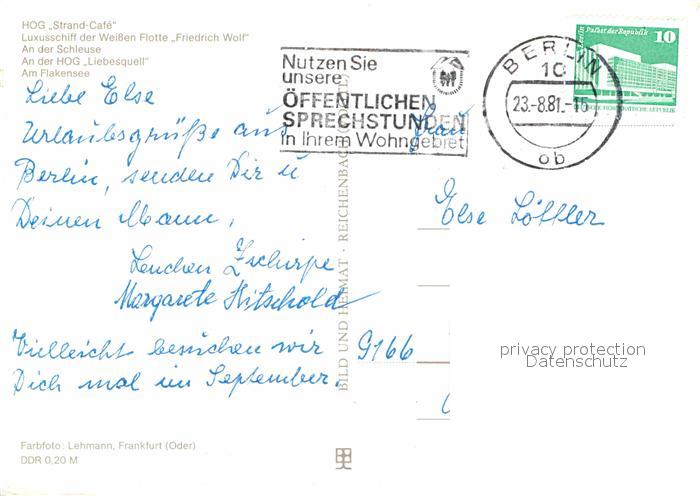 HOG „Strand-Café“
Luxusschiff der Weißen Flotte „Friedrich Wolf“
An der Schleuse
An der HOG „Liebesquell“
Am Flakensee
Liebe Else
Urlaubsgrüße aus
Berlin, senden Dir u
Deinen Mann,
Lenchen Zschirpe
Margarete Kitschold
Vielleicht besuchen wir
Dich mal im September.
Farbfoto: Lehmann, Frankfurt (Oder)
DDR 0,20 M
BILD UND HEIMAT · REICHENBACH (VOGTL)
Nutzen Sie
unsere
ÖFFENTLICHEN
SPRECHSTUNDEN
in Ihrem Wohngebiet
BERLIN
10
23.-8.81.-16
ob
Berlin, Palast der Republik 10
DEUTSCHE DEMOKRATISCHE REPUBLIK
Frau
Else Löffler
9166
privacy protection
Datenschutz